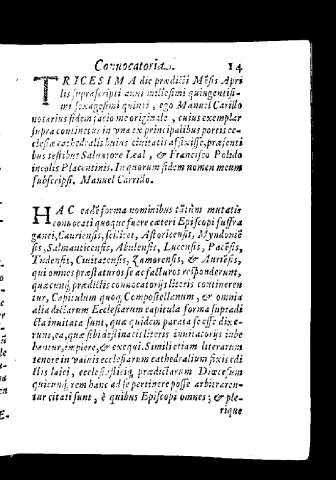 Conuocatoria. 14
TRICESIMA die prædicti Mẽsis Apri
lis suprascripti anni millesimi quingentisi-
mi sexagesimi quinti, ego Manuel Carillo
notarius fidem facio me originale, cuius exemplar
supra continetur in vna ex principalibus portis ec-
clesiæ cathedralis huius ciuitatis affixisse, præsenti
bus testibus Saluatore Leal, & Francisco Polido
incolis Placentinis. In quorum fidem nomen meum
subscripsi. Manuel Carrido.
HAC eadẽ forma nominibus tãtùm mutatis
conuocati quoque fuere cæteri Episcopi suffra
ganei, Cauriensis, scilicet, Astoricensis, Myndoniẽ
sis, Salmanticensis, Abulensis, Lucensis, Pacẽsis,
Tudensis, Ciuitatensis, Zamorensis, & Auriẽsis,
qui omnes præstaturos se ac facturos responderunt,
quæcunq; prædictis conuocatorijs literis contineren
tur, Capitulum quoq; Compostellanum, & omnia
alia dictarum Ecclesiarum capitula forma supradi
cta inuitata sunt, quæ quidem parata se esse dixe-
runt, ea, quæ sibi destinatis literis inuitatorijs iube
bantur, implere, & exequi. Simili etiam literarum
tenore in valuis ecclesiarum cathedralium fixis edi
ctis laici, ecclesiasticiq; prædictarum Diœcesum
quicunq; rem hanc ad se pertinere posse arbitraren-
tur citati sunt, è quibus Episcopi omnes; & ple-
rique